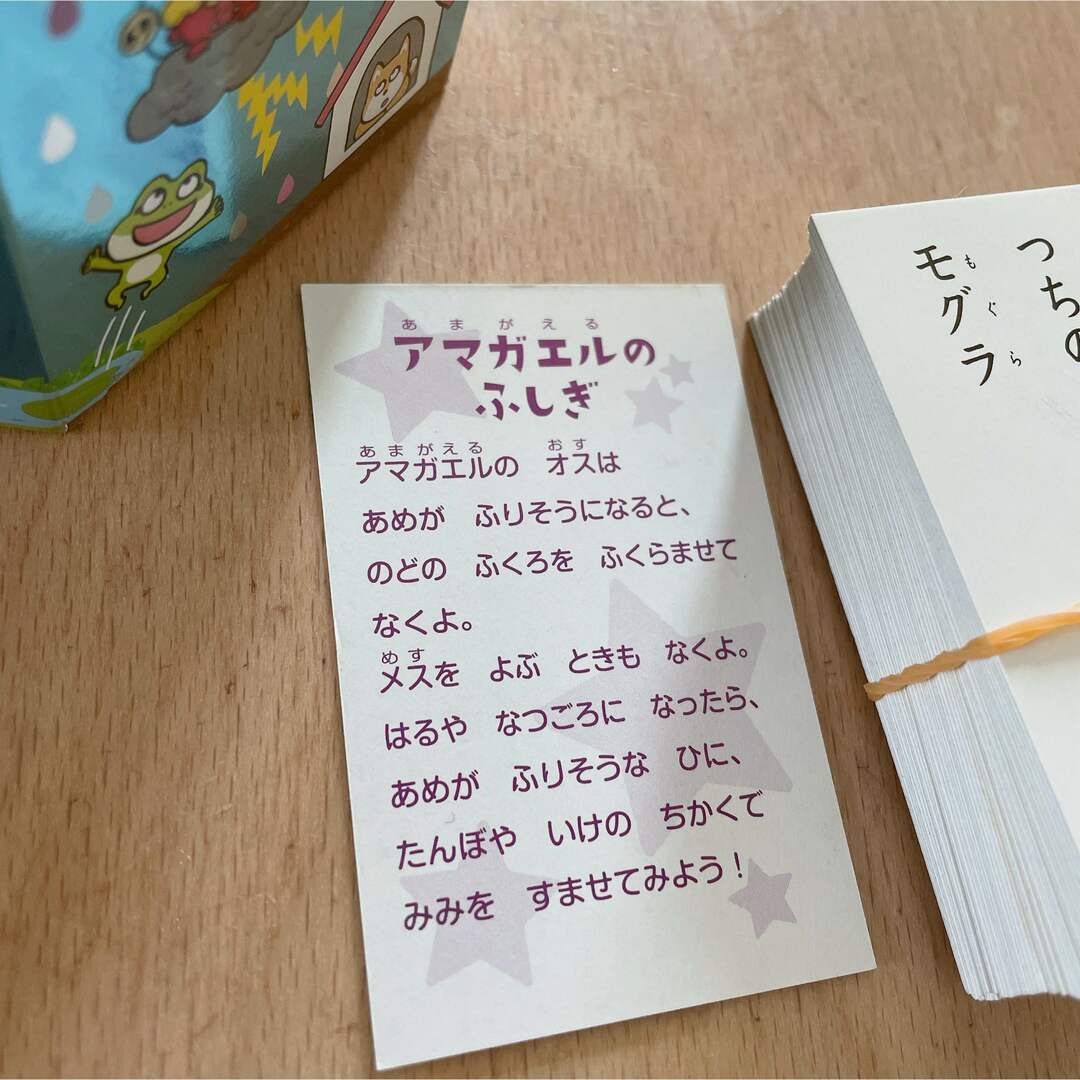 あまがえる
アマガエルの
ふしぎ
あまがえる おす
アマガエルの オスは
あめが ふりそうになると、
のどの ふくろを ふくらませて
なくよ。
めす
メスを よぶ ときも なくよ。
はるや なつごろに なったら、
あめが ふりそうな ひに、
たんぼや いけの ちかくで
みみを すませてみよう!
つちの
モグラ
もぐら